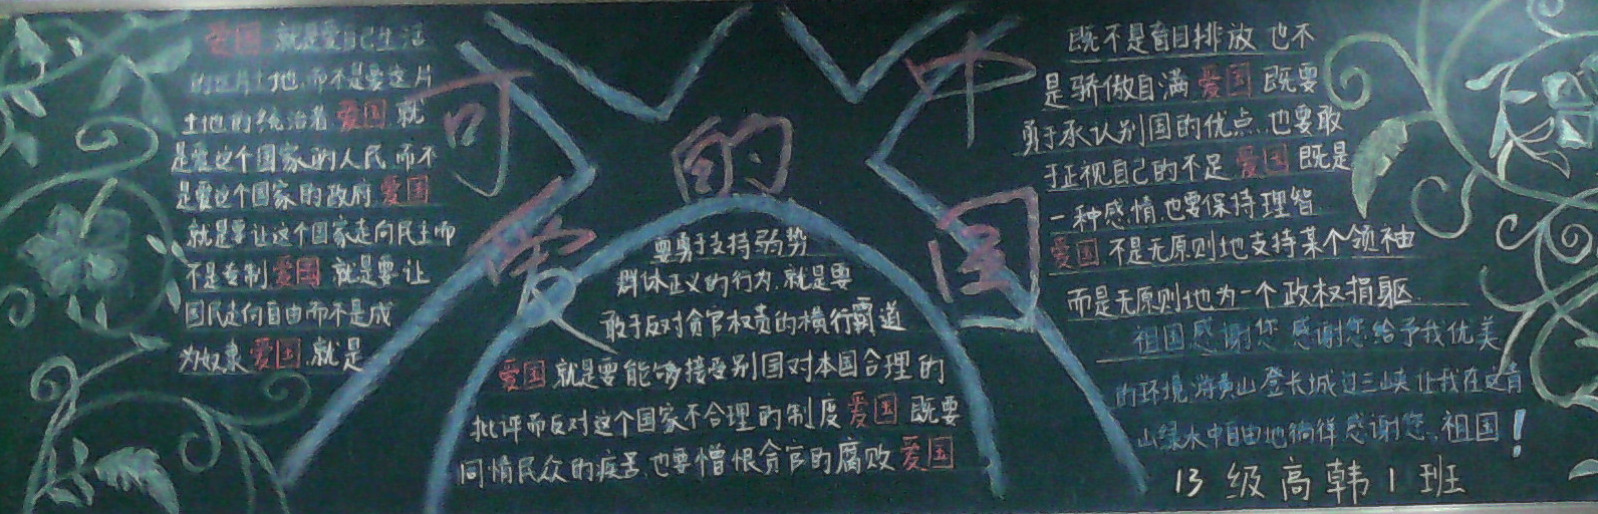 可爱的中国
爱国 就是爱自己生活
的这片土地,而不是要这片
土地的统治着 爱国 就
是爱这个国家的人民 而不
是爱这个国家的政府 爱国
就是要让这个国家走向民主而
不是专制 爱国 就是要让
国民走向自由而不是成
为奴隶 爱国,就是
要勇于支持弱势
群体正义的行为,就是要
敢于反对贪官权贵的横行霸道
爱国 就是要能够接受别国对本国合理的
批评而反对这个国家不合理的制度 爱国 既要
同情民众的疾苦,也要憎恨贪官的腐败 爱国
既不是盲目排放 也不
是骄傲自满 爱国 既要
勇于承认别国的优点,也要敢
于正视自己的不足 爱国 既是
一种感情,也要保持理智
爱国 不是无原则地支持某个领袖
而是无原则地为一个政权捐躯
祖国感谢您 感谢您给予我优美
的环境,游黄山 登长城 过三峡 让我在这青
山绿水中自由地徜徉 感谢您,祖国!
13级高韩1班